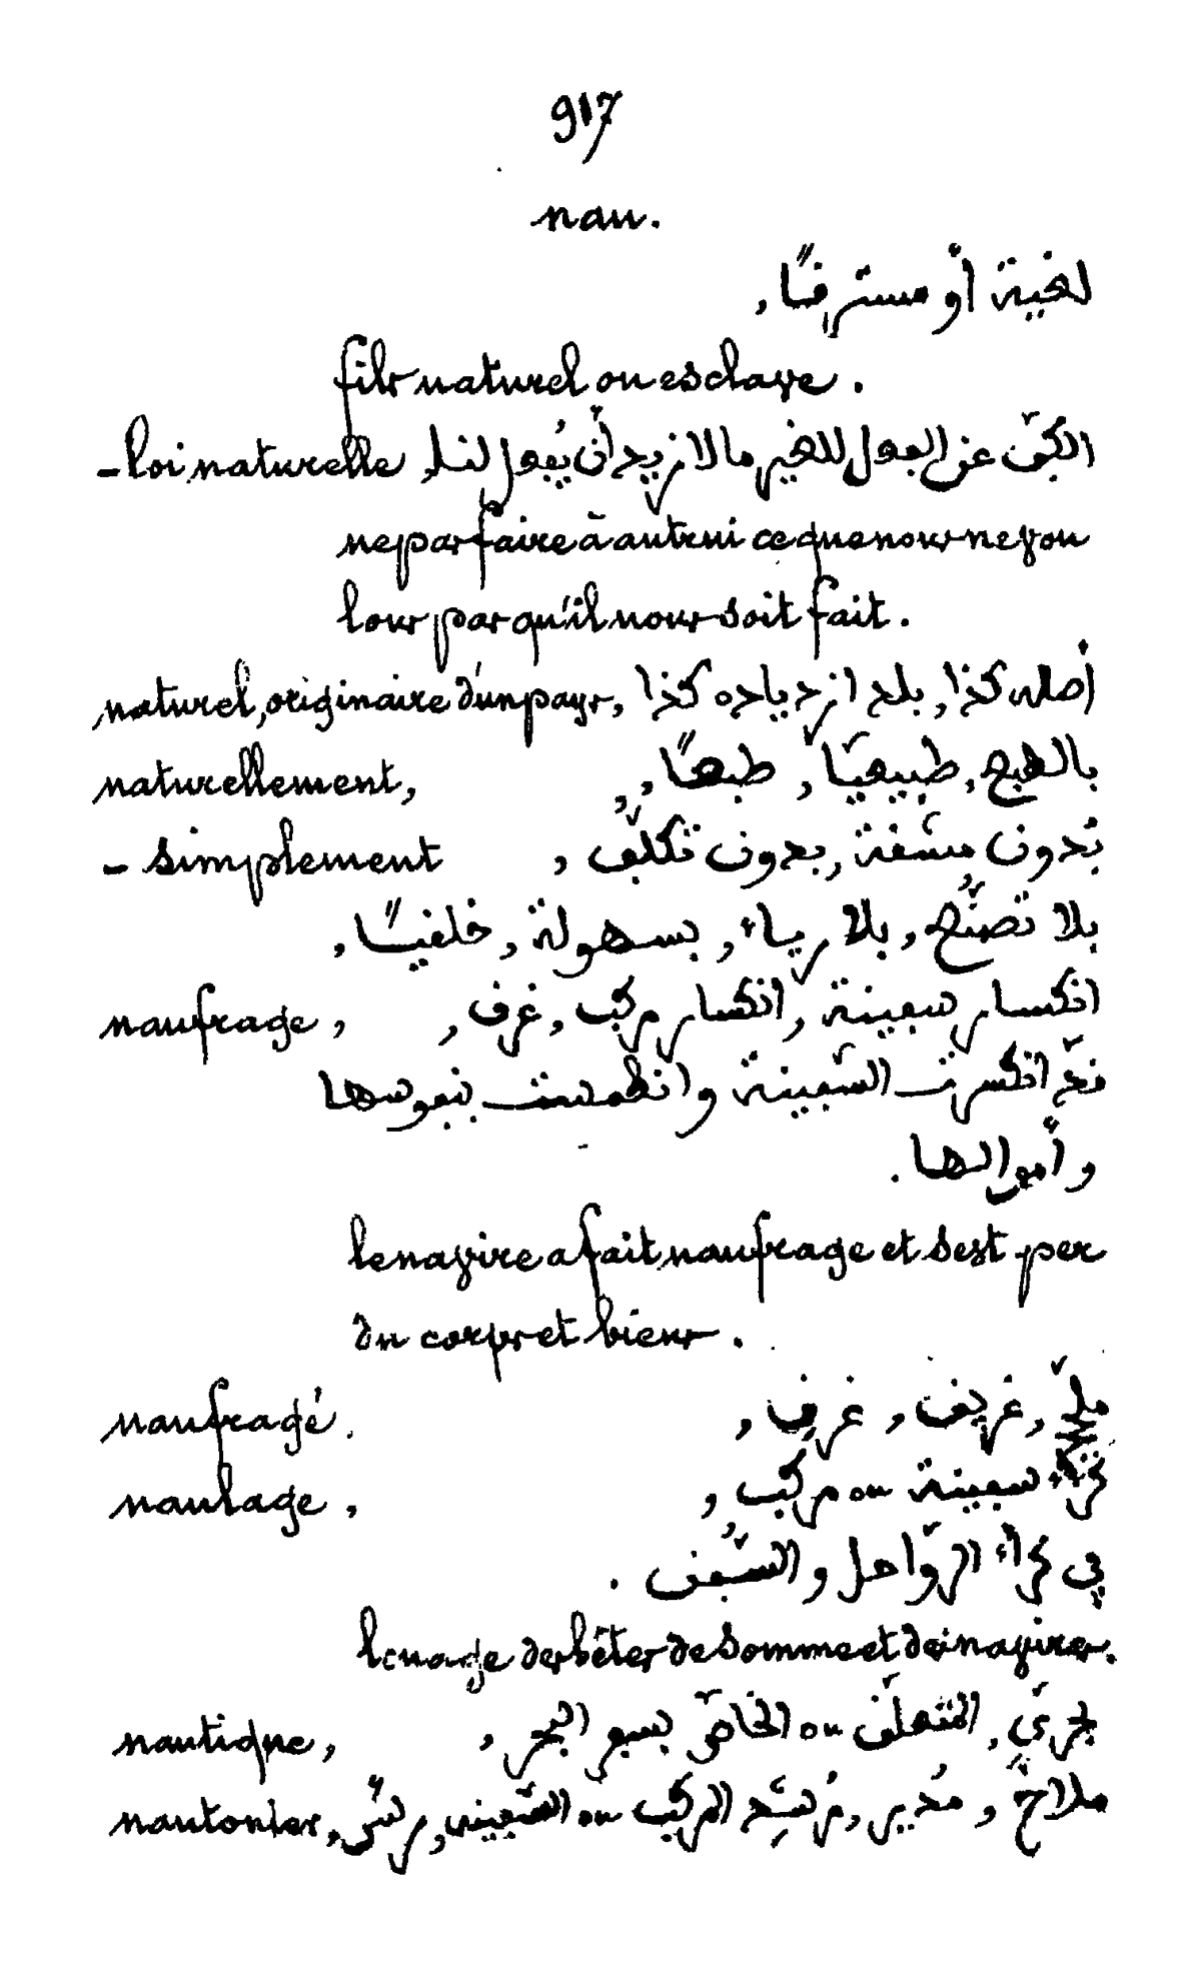 917
nau.
لغية أو مسترقًا,
fils naturel ou esclave.
- loi naturelle, الكفّ عن الفعل للغير ما لا نريد أن يُفعل لنا
ne pas faire à autrui ce que nous ne vou
lons pas qu'il nous soit fait.
naturel, originaire d'un pays, أصله كذا, بلد ازدياده كذا
naturellement, بالطبع, طبيعيّا, طبعًا,
- simplement بدون مشقة, بدون تكلّف,
بلا تصنّع, بلا رياء, بسهولة, خلقيًا,
naufrage, انكسار سفينة, انكسار مركب, غرق,
انكسرت السّفينة وانطمست بنفوسها
وأموالها.
le navire a fait naufrage et s'est per
du corps et biens.
naufragé. غريق, غرق,
naulage, كراء سفينة ou مركب,
في كراء الرّواحل والسّفن.
louage des bêtes de somme et des navires.
nautique, بحريّ, المتعلّق ou الخاصّ بسفر البحر,
nautonier, ملاّح, مُدير, مُرشِد المركب ou السّفينة, رئيس,